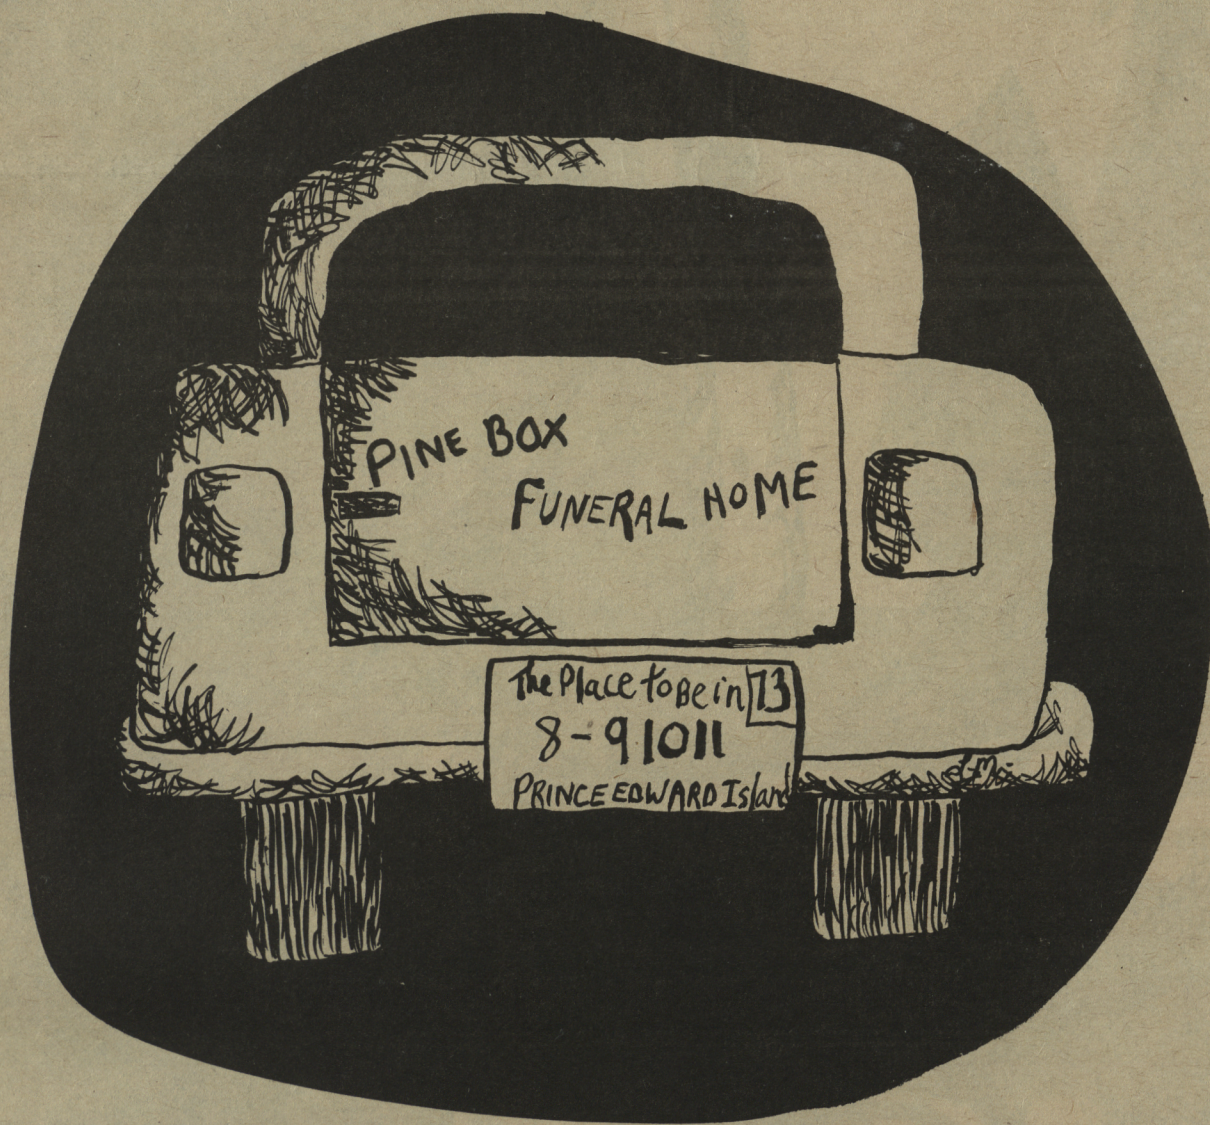 PINE BOX
FUNERAL HOME
The Place to Be in 73
8-91011
PRINCE EDWARD Island